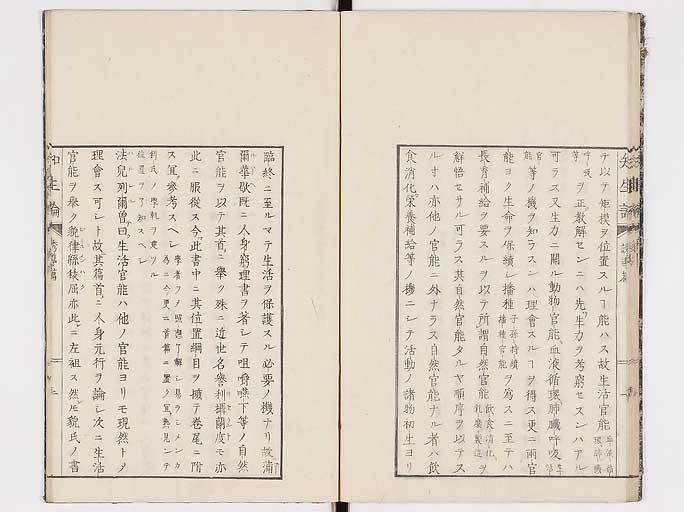 テ以テ矩摸ヲ位置スルヿ能ハス故生活官能
ヲ正敷解センニハ先生力ヲ考窮セスンハアル
可ラス又生力ニ關ル動物官能血液循環肺臟呼吸
等ノ機ヲ知ラスンハ理會スルヿヲ得ス更ニ兩官
能ヨク生命ヲ保續シ播種 子孫持續 播種官能 ヲ爲スニ至テハ
長育補給ヲ要スルヲ以テ所謂自然官能 飲食消化 乳糜製造 ヲ
解悟セサル可ラス其自然官能タルヤ順序ヲ以テス
ル寸ハ亦他ノ官能ニ外ナラス自然官能ナル者ハ飲
食消化榮養補給等ノ機ニシテ活動ノ諸物初生ヨリ
臨終ニ至ルマテ生活ヲ保護スル必要ノ機ナリ故瀟
爾華歇既ニ人身窮理書ヲ著シテ咀嚼嚥下等ノ自然
官能ヲ以テ其首ニ擧ク殊ニ近世名譽利攝蘭度モ亦
此ニ服從ス今此書中ニ其位置綱目ヲ擴テ卷尾ニ附
ス宜ク參考スヘレ
法兒列爾曾曰生活官能ハ他ノ官能ヨリモ現然トメ
理會ス可シト故其篇首ニ人身元行ヲ論シ次ニ生活
官能ヲ擧ク貌律緜抜屈亦此ニ左袒ス然𪜈貌氏ノ書
知生論